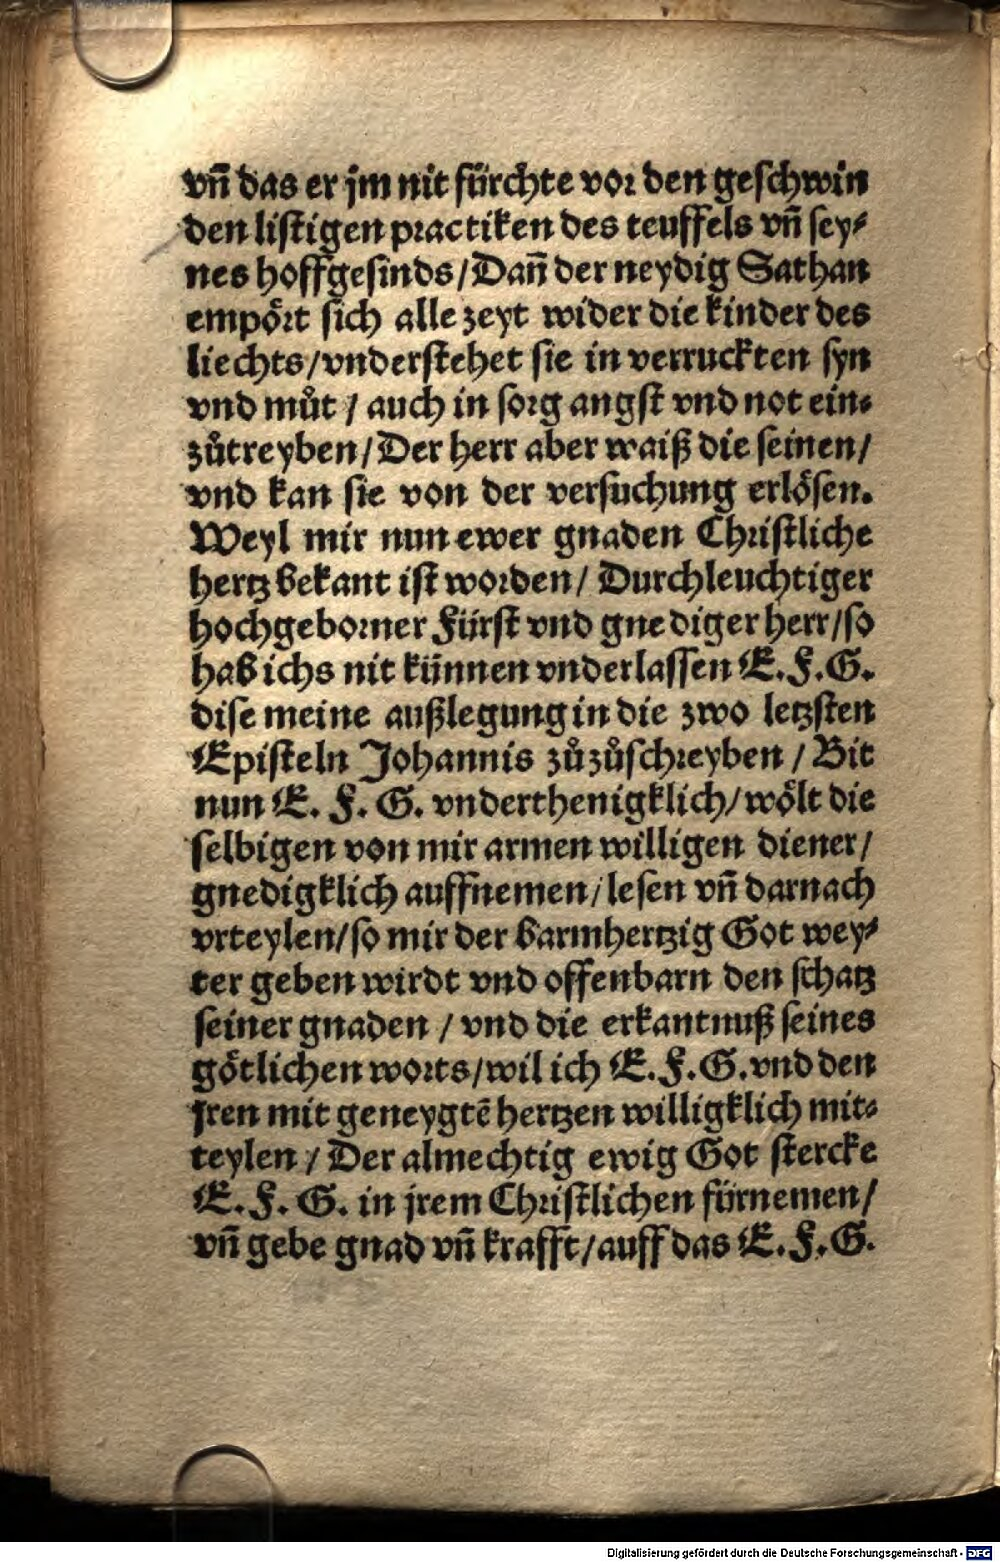 vñ das er jm nit fürchte vor den geschwin
den listigen practiken des teuffels vñ sey⸗
nes hoffgesinds/Dañ der neydig Sathan
empört sich alle zeyt wider die kinder des
liechts/vnderstehet sie in verruckten syn
vnd můt / auch in sorg angst vnd not ein⸗
zůtreyben/Der herr aber waiß die seinen/
vnd kan sie von der versuchung erlösen.
Weyl mir nun ewer gnaden Christliche
hertz bekant ist worden/ Durchleuchtiger
hochgeborner Fürst vnd gnediger herr/so
hab ichs nit künnen vnderlassen E.F.G.
dise meine außlegung in die zwo letzsten
Episteln Johannis zůzůschreyben / Bit
nun E. F. G. vnderthenigklich/wölt die
selbigen von mir armen willigen diener/
gnedigklich auffnemen/lesen vñ darnach
vrteylen/so mir der barmhertzig Got wey⸗
ter geben wirdt vnd offenbarn den schatz
seiner gnaden / vnd die erkantnuß seines
götlichen worts/wil ich E.F.G.vnd den
jren mit geneygtē hertzen willigklich mit⸗
teylen / Der almechtig ewig Got stercke
E.F.G. in jrem Christlichen fürnemen/
vñ gebe gnad vñ krafft/auff das E.F.G.
Digitalisierung gefördert durch die Deutsche Forschungsgemeinschaft - DFG